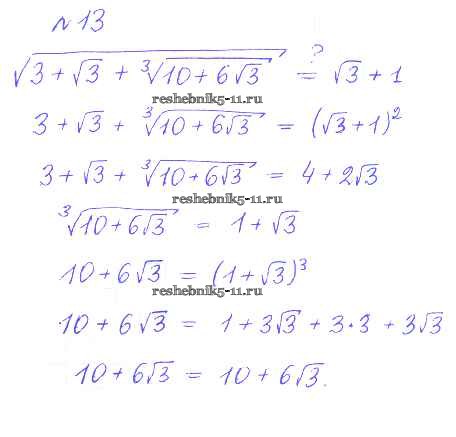 № 13
√(3 + √3 + ∛(10 + 6√3)) ?= √3 + 1
reshebnik5-11.ru
3 + √3 + ∛(10 + 6√3) = (√3 + 1)²
3 + √3 + ∛(10 + 6√3) = 4 + 2√3
reshebnik5-11.ru
∛(10 + 6√3) = 1 + √3
10 + 6√3 = (1 + √3)³
reshebnik5-11.ru
10 + 6√3 = 1 + 3√3 + 3·3 + 3√3
10 + 6√3 = 10 + 6√3.